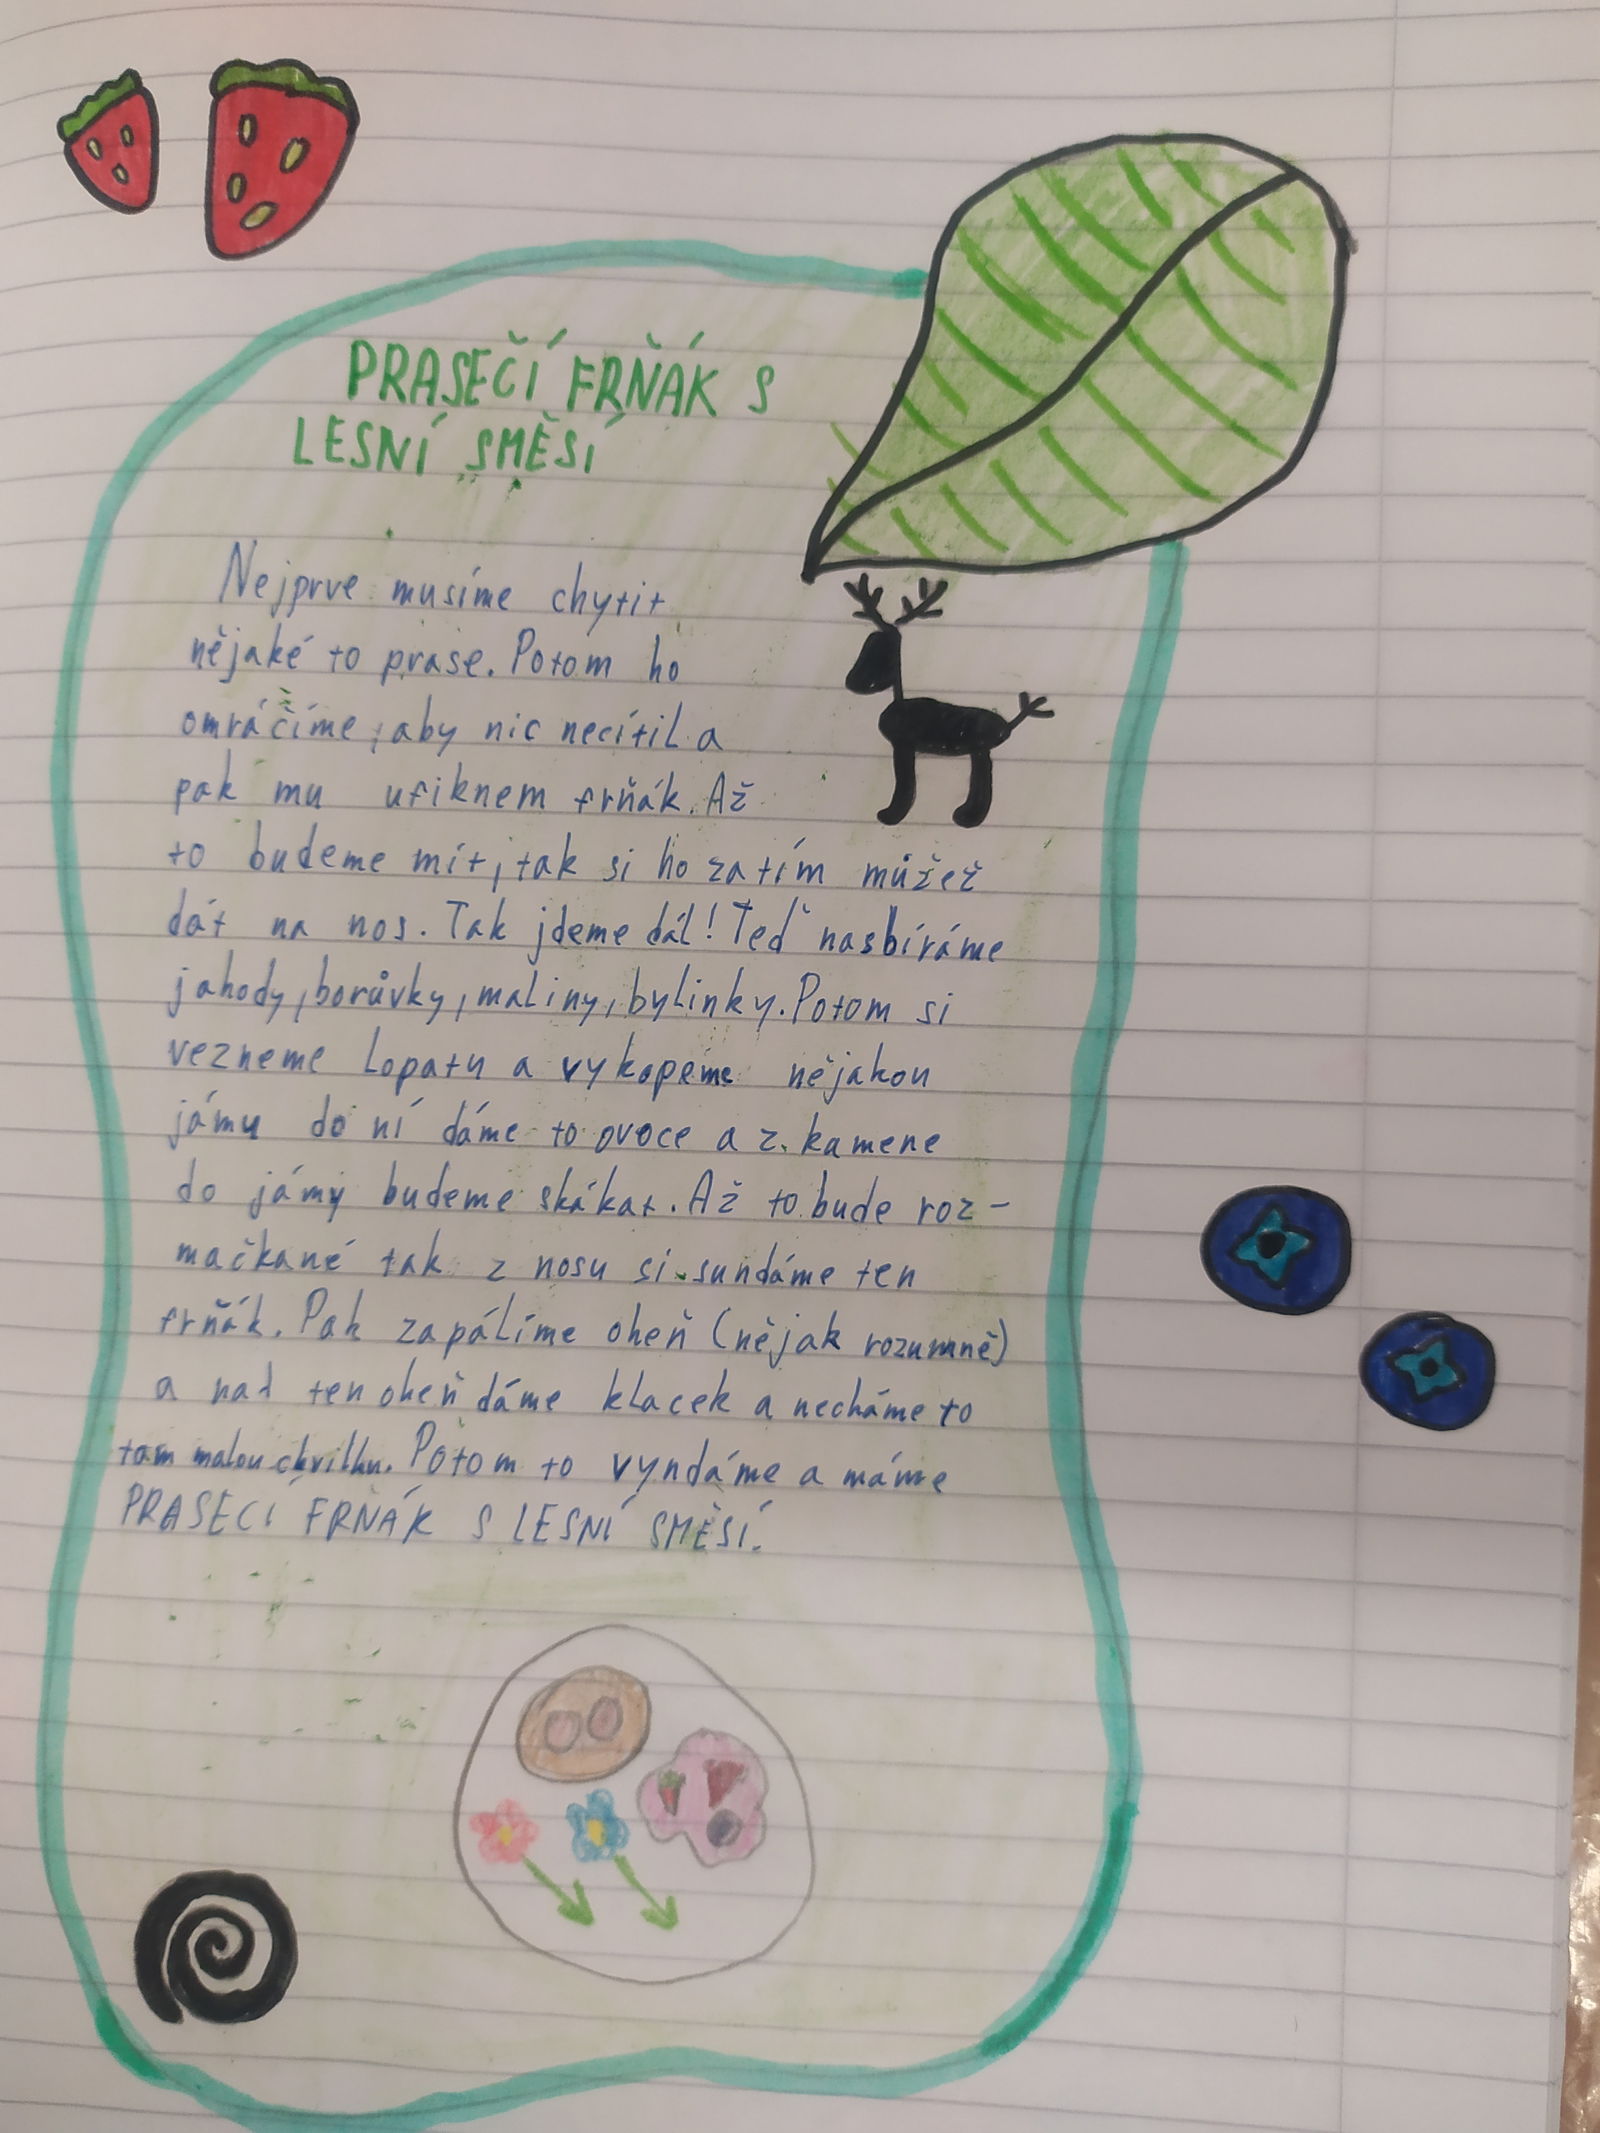 PRASEČÍ FRŇÁK S
LESNÍ SMĚSÍ
Nejprve musíme chytit
nějaké to prase. Potom ho
omráčíme, aby nic necítil a
pak mu ufiknem frňák. Až
to budeme mít, tak si ho zatím můžeš
dát na nos. Tak jdeme dál! Teď nasbíráme
jahody, borůvky, maliny, bylinky. Potom si
vezneme lopatu a vykopeme nějakou
jámu do ní dáme to ovoce a z kamene
do jámy budeme skákat. Až to bude roz-
mačkané tak z nosu si sundáme ten
frňák. Pak zapálíme oheň (nějak rozumně)
a nad ten oheň dáme klacek a necháme to
tam malou chvilku. Potom to vyndáme a máme
PRASECÍ FRŇÁK S LESNÍ SMĚSÍ.